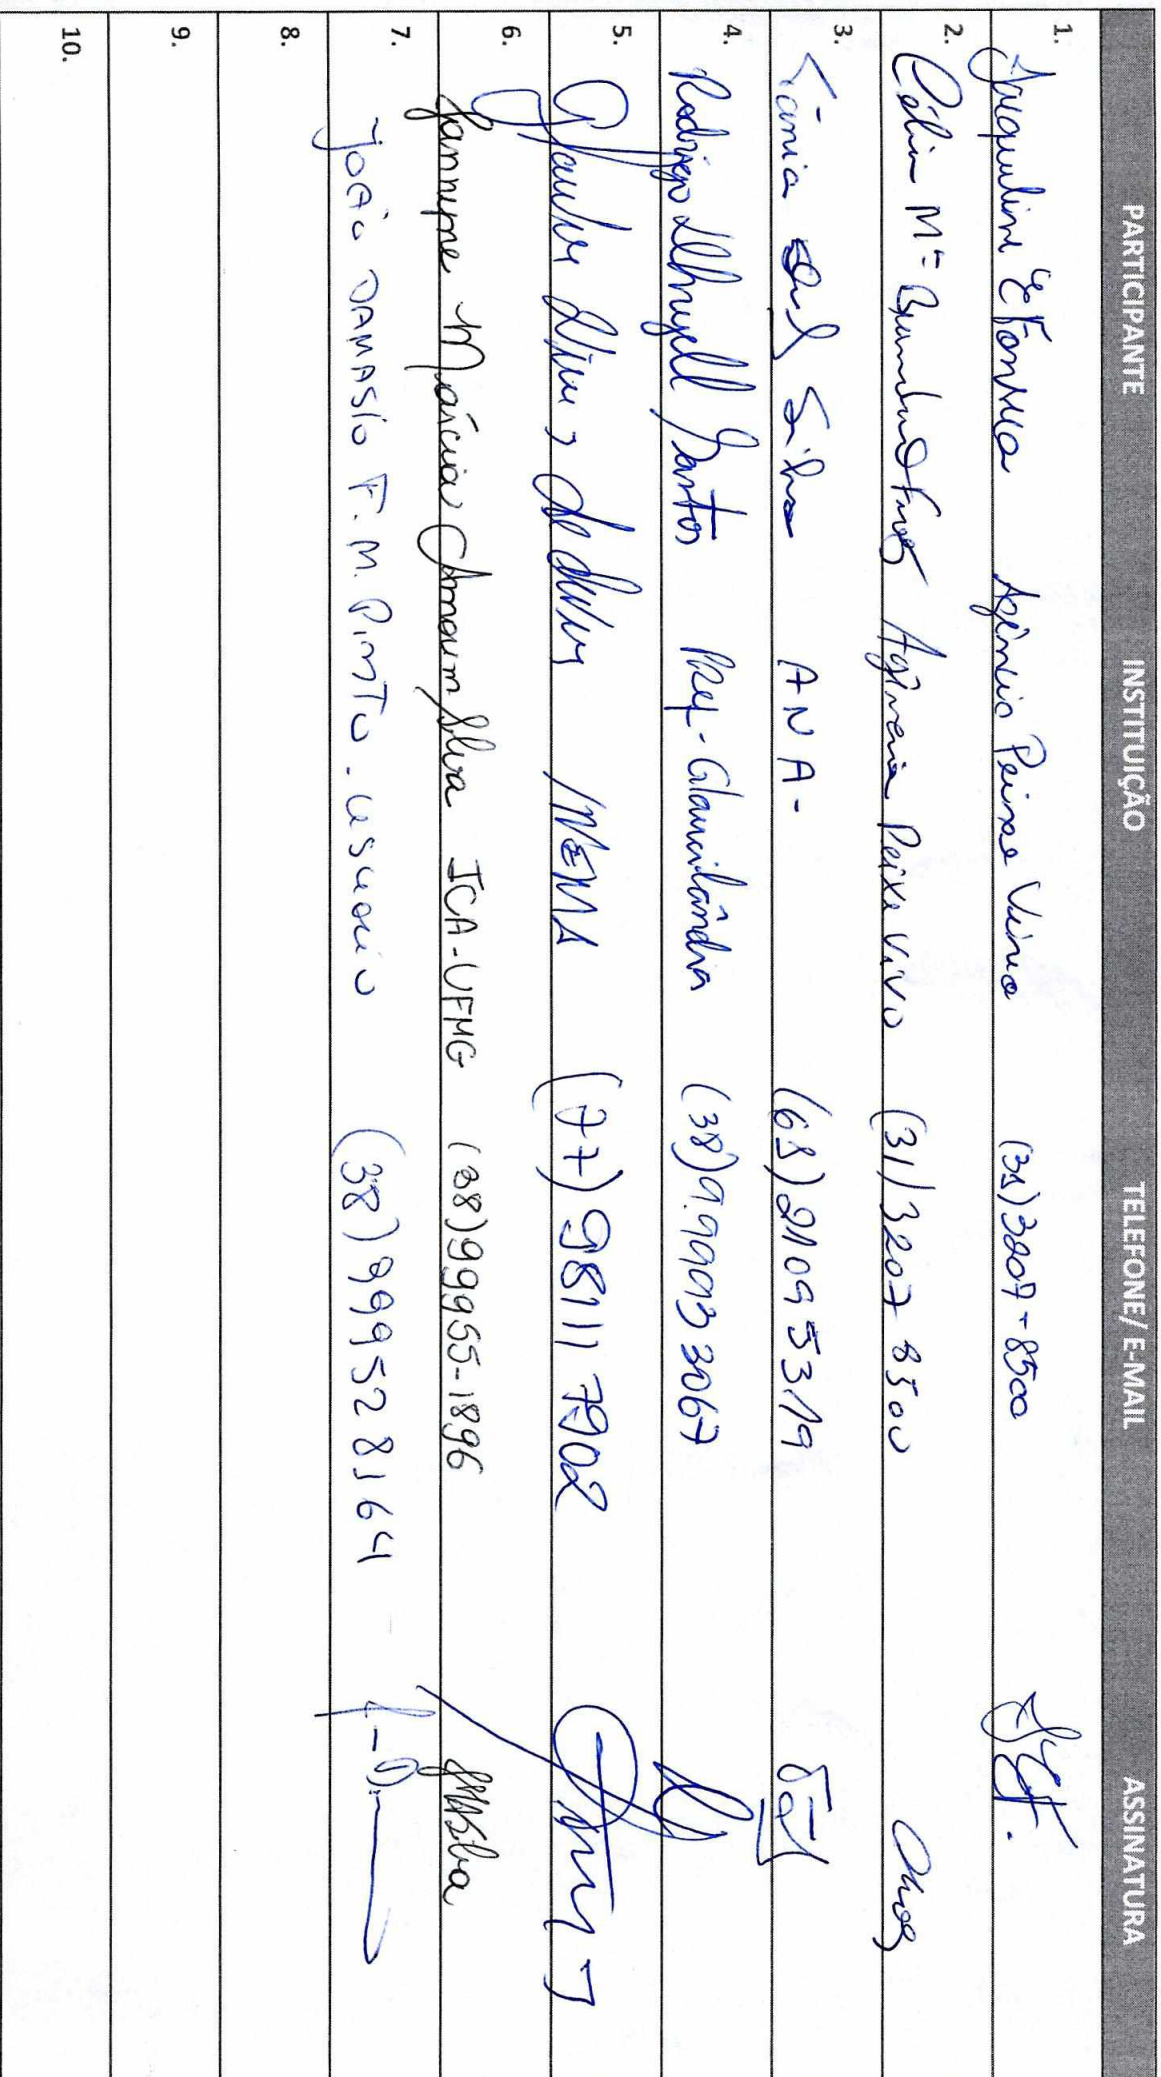 PARTICIPANTE INSTITUIÇÃO TELEFONE/ E-MAIL ASSINATURA
1. Jaqueline E Fonseca Agência Peixe Vivo (31) 3207-8500
2. Célia Mª Agência Peixe Vivo (31) 3207 8500
3. Tânia Silva ANA - (61) 2109 5319
4. Rodrigo Santos Pref - Glaucilândia (38) 9.9993 3067
5. INEMA (77) 98111 7902
6. Jannyne Márcia Amorim Silva ICA-UFMG (38) 99955-1896
7. João DAMASIO F. M. PINTO - usuário (38) 999528164
8.
9.
10.